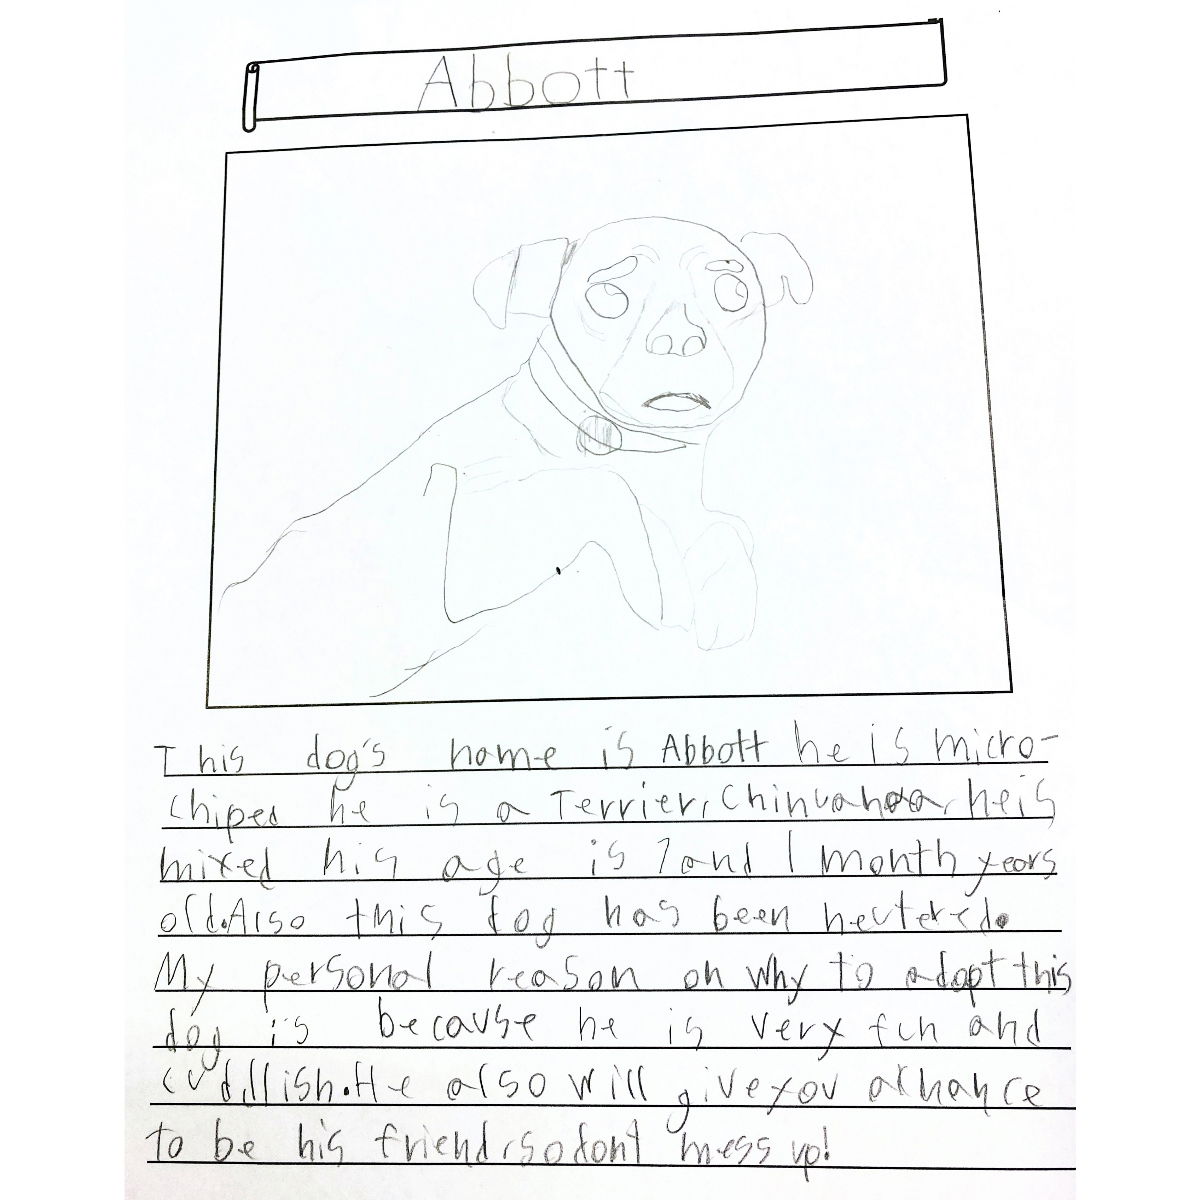 Abbott
This dog's name is Abbott he is micro-
chiped he is a Terrier, Chihuahaa, he is
mixed his age is 7 and 1 month years
old. Also this dog has been neutered.
My personal reason on why to adopt this
dog is because he is very fun and
cuddllish. He also will give you a chance
to be his friend, so dont mess up!